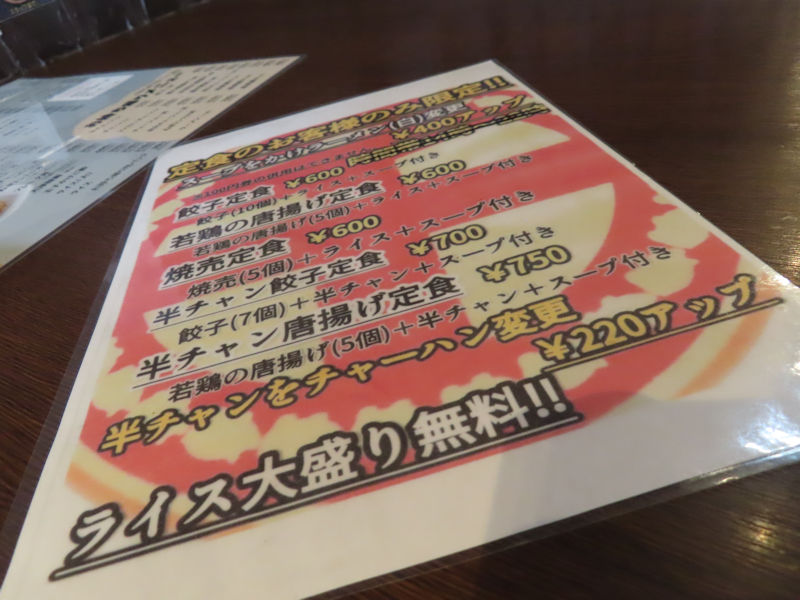 定食のお客様のみ限定!!
スープをかけラーメン(白)変更
¥400アップ
※100円券の併用はできません
餃子定食 ¥600
餃子(10個)+ライス+スープ付き
若鶏の唐揚げ定食 ¥600
若鶏の唐揚げ(5個)+ライス+スープ付き
焼売定食 ¥600
焼売(5個)+ライス+スープ付き
半チャン餃子定食 ¥700
餃子(7個)+半チャン+スープ付き
半チャン唐揚げ定食 ¥750
若鶏の唐揚げ(5個)+半チャン+スープ付き
半チャンをチャーハン変更
¥220アップ
ライス大盛り無料!!